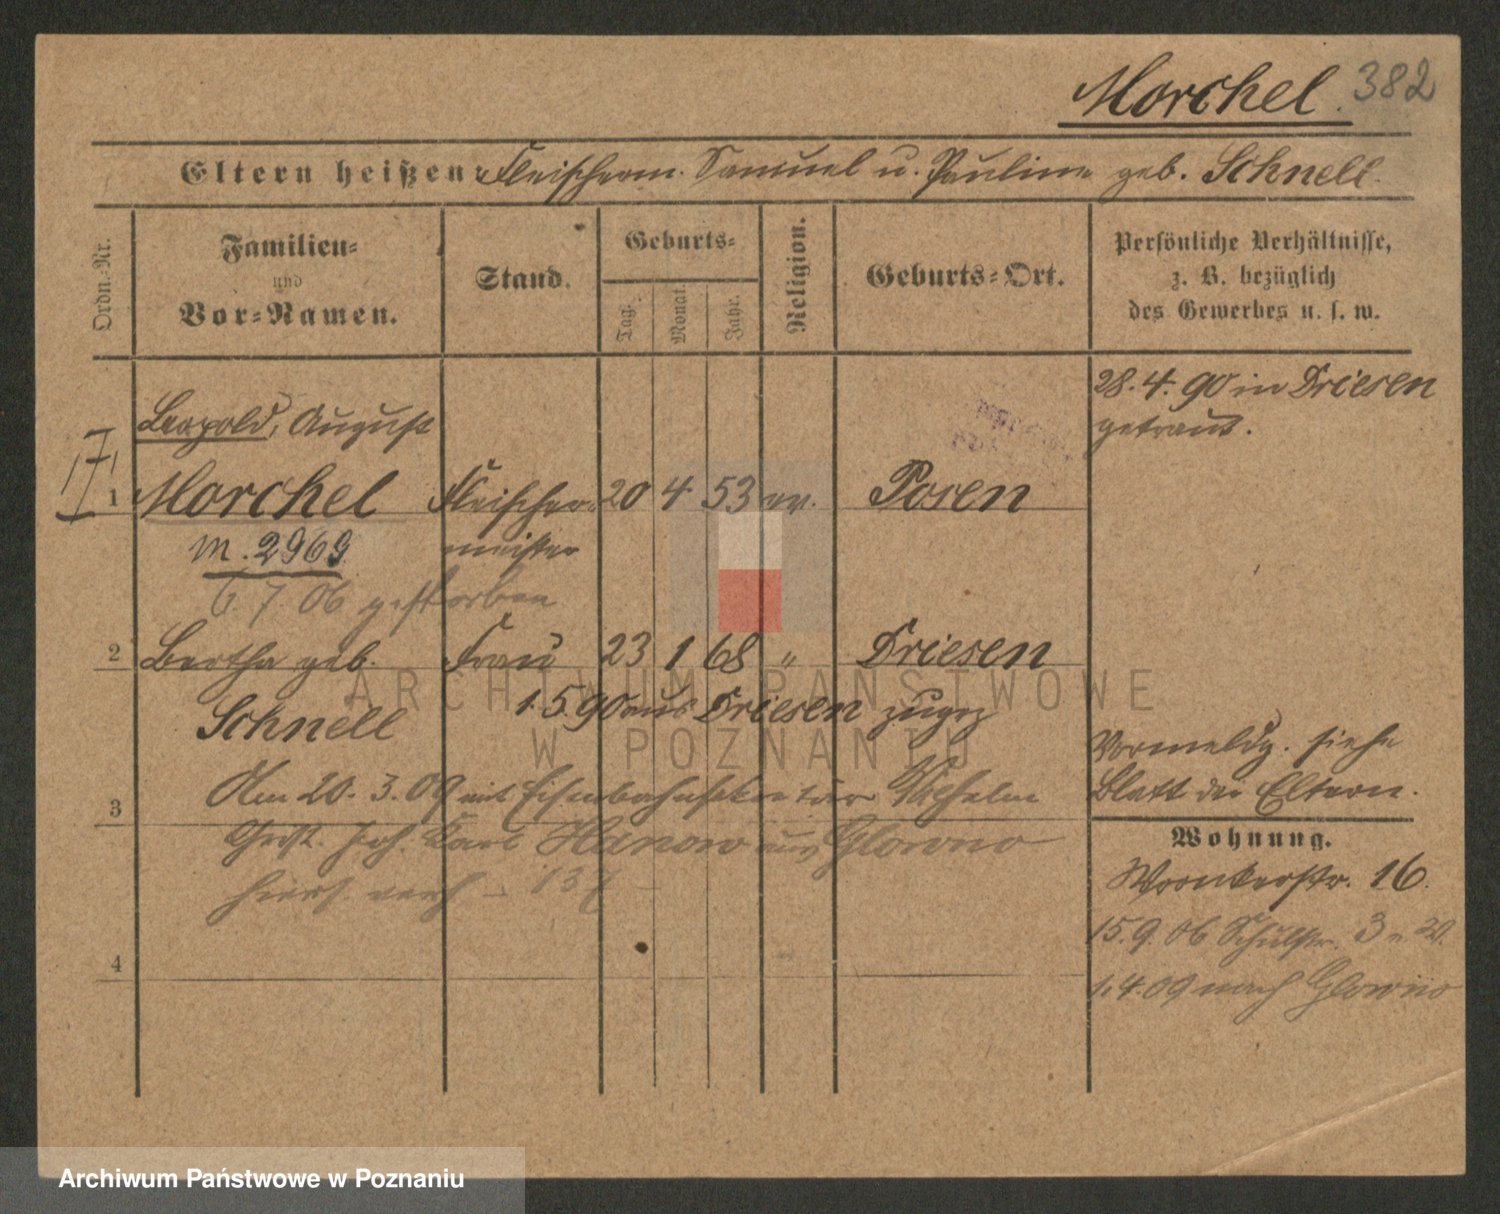 Morchel. 382
Eltern heißen: Fleischerm. Samuel u. Pauline geb. Schnell.
Ordn.-Nr.
Familien-
und
Vor-Namen.
Stand.
Geburts-
Tag.
Monat.
Jahr.
Religion.
Geburts-Ort.
Persönliche Verhältnisse,
z. B. bezüglich
des Gewerbes u. s. w.
28.4.90 in Driesen
getraut.
Leopold, August
1 Morchel Fleischer- 20 4 53 ev. Posen
meister
M. 2969
6.7.06 gestorben
2 Bertha geb. Frau 23 1 68 " Driesen
Schnell 1.5.90 aus Driesen zugez
Vormeldg. siehe
Blatt der Eltern.
3 Am 20.3.09 mit Eisenbahnsekretär Wilhelm
Joh. Karl Hanow aus Glowno
hiers. verh – 137
Wohnung.
Wronkerstr. 16.
15.9.06 Schulstr. 3
4
1.4.09 nach Glowno
ARCHIWUM PAŃSTWOWE
W POZNANIU
Archiwum Państwowe w Poznaniu